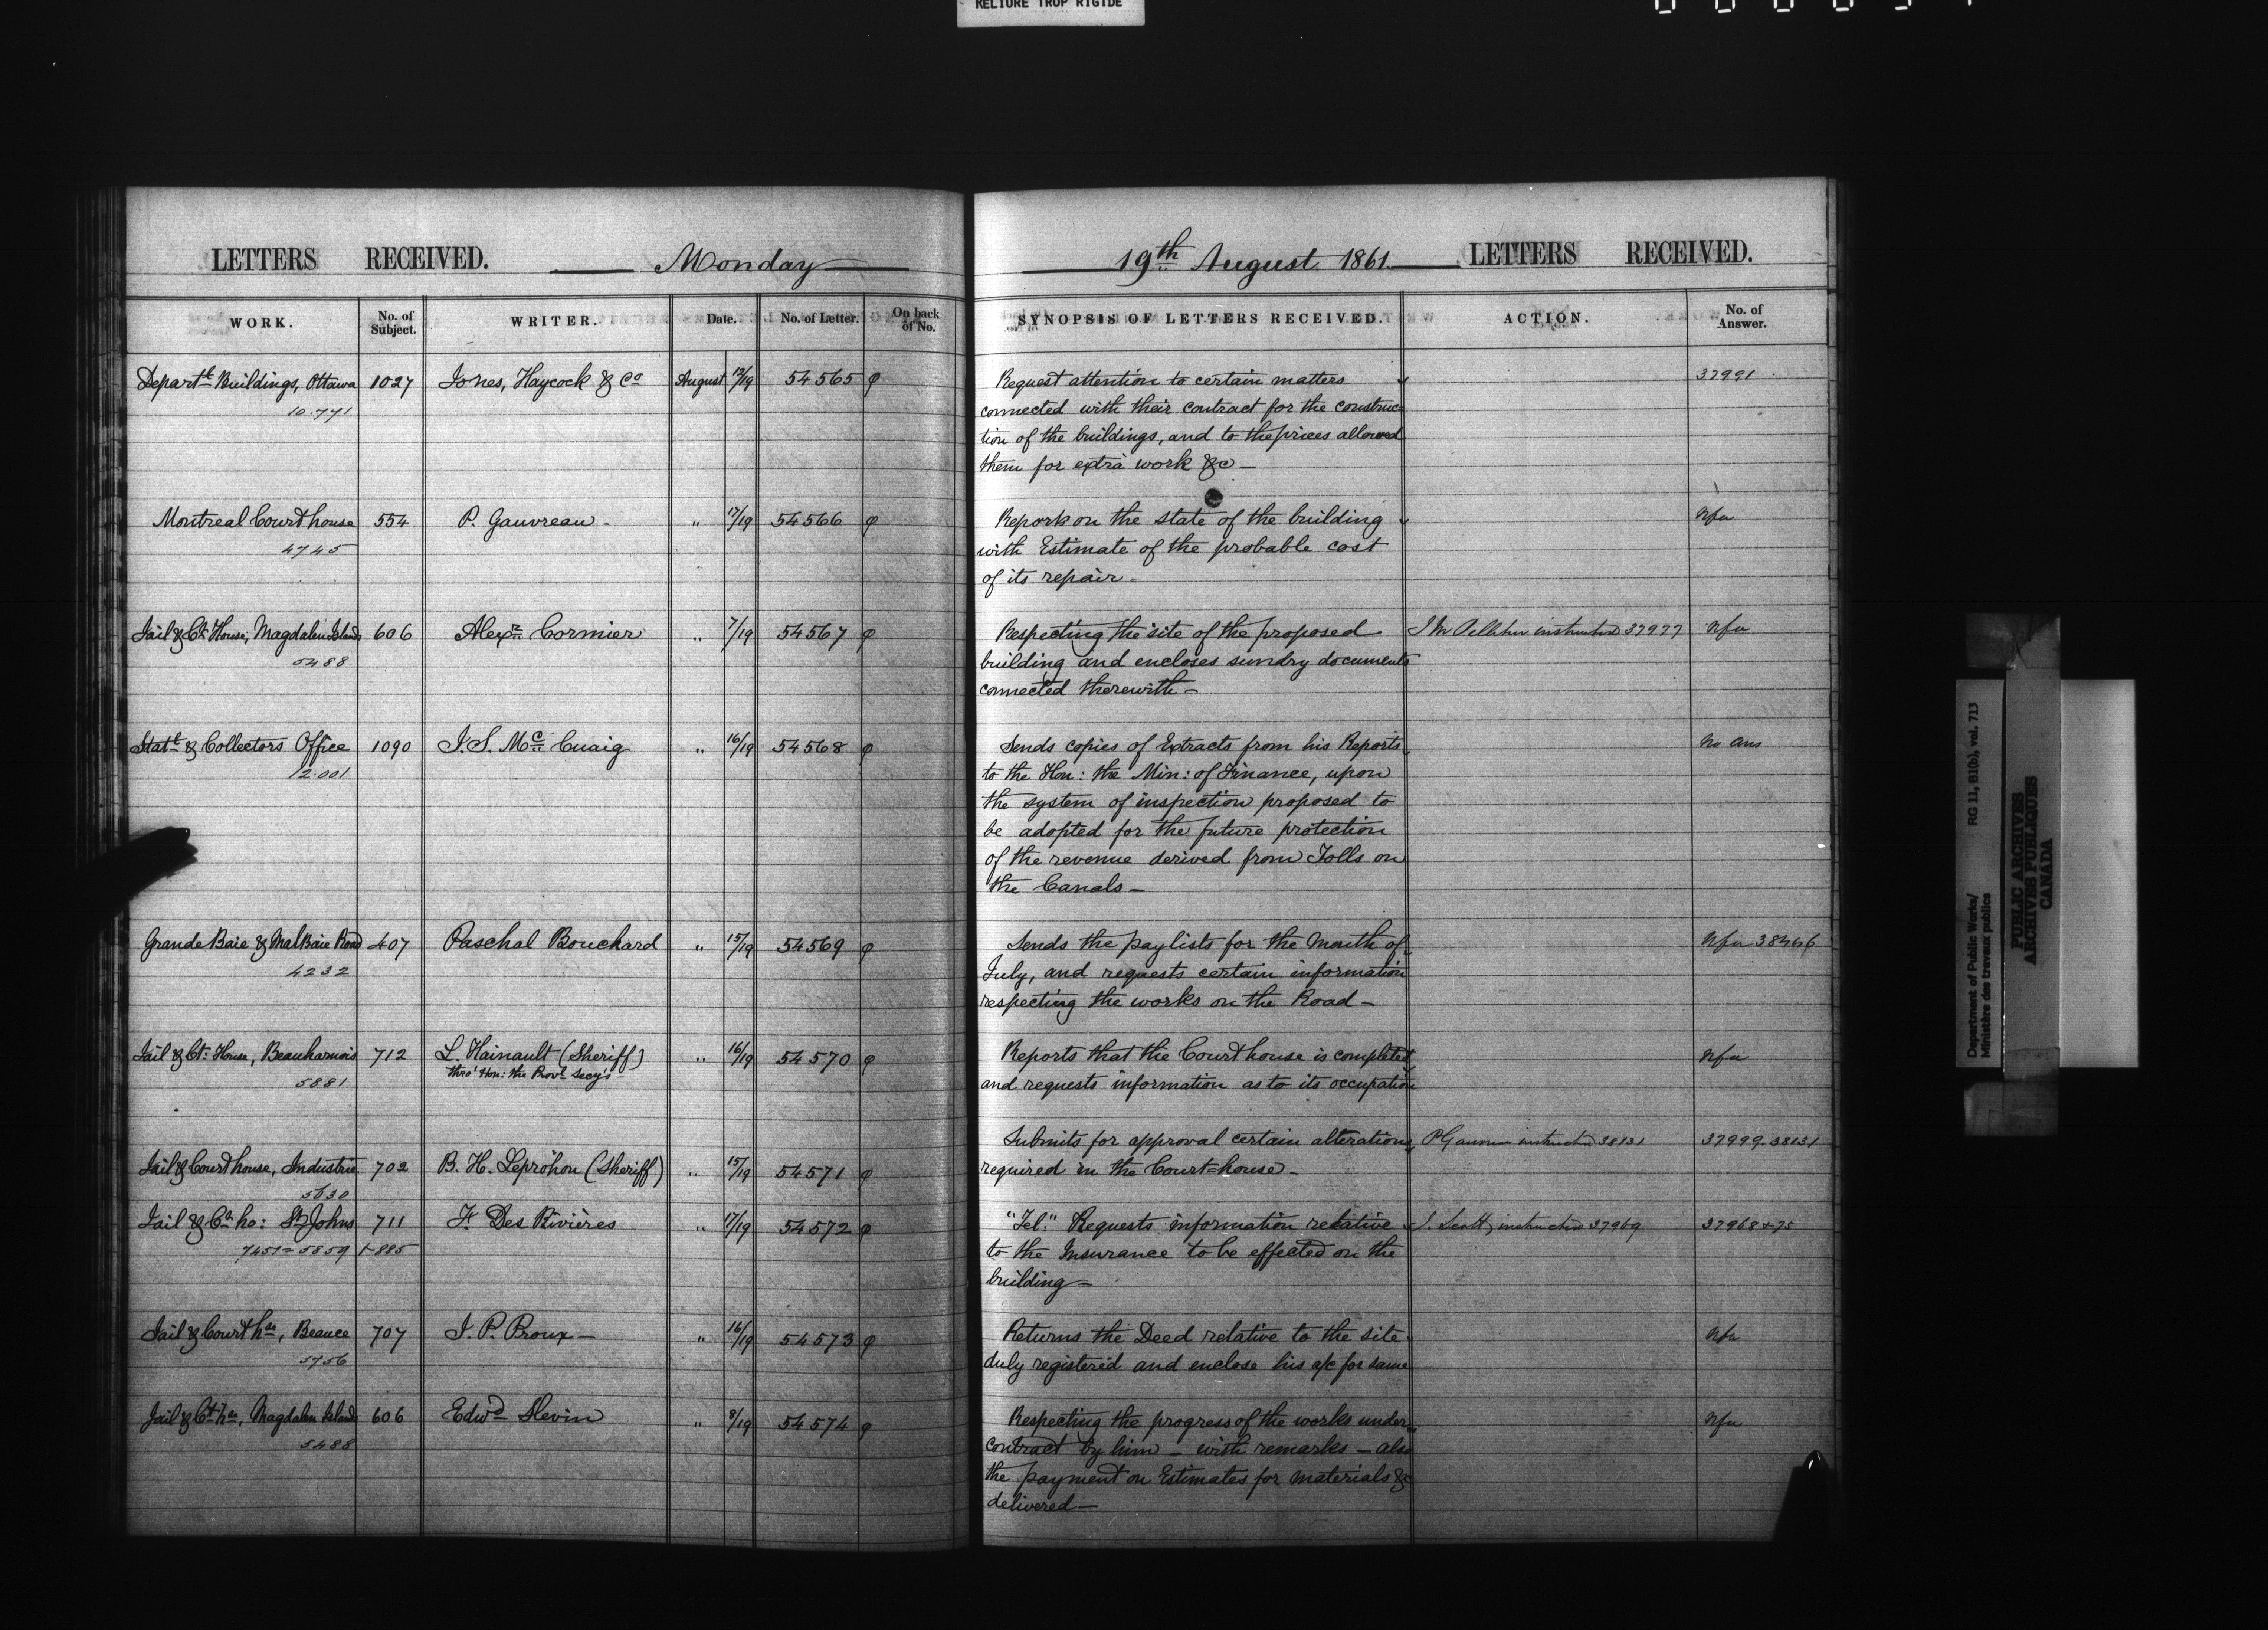 RELIURE TROP RIGIDE
LETTERS RECEIVED. Monday
WORK. No. of Subject. WRITER. Date. No. of Letter. On back of No.
Depart.t Buildings, Ottawa 1027 Jones, Haycock & Co August 12/19 54565 φ
10.771
Montreal Court house 554 P. Gauvreau - " 17/19 54566 φ
4745
Jail & Ct. House, Magdalen Islands 606 Alex.r Cormier " 7/19 54567 φ
5488
Stat.t & Collectors Office 1090 J. S. Mc Cuaig " 16/19 54568 φ
12.001
Grande Baie & Mal Baie Road 407 Paschal Bouchard " 15/19 54569 φ
4232
Jail & Ct: House, Beauharnois 712 L. Hainault (Sheriff) " 16/19 54570 φ
thro' Hon: the Prov.l Secy's -
5881
Jail & Court house, Industrie 702 B. H. Leprohon (Sheriff) " 15/19 54571 φ
5630
Jail & Ct. ho: St Johns 711 F. Des Rivières " 17/19 54572 φ
7451 = 5859 + 885
Jail & Court h.se, Beauce 707 J. P. Proux - " 16/19 54573 φ
5756
Jail & Ct. h.se, Magdalen Islands 606 Edw.d Slevin " 8/19 54574 φ
5488
19th August 1861. LETTERS RECEIVED.
SYNOPSIS OF LETTERS RECEIVED. ACTION. No. of Answer.
Request attention to certain matters 37991
connected with their contract for the construc-
tion of the buildings, and to the prices allowed
them for extra work &c -
Report on the state of the building Nfa
with Estimate of the probable cost
of its repair -
Respecting the site of the proposed instructed 37977 Nfa
building and encloses sundry documents
connected therewith -
Sends copies of Extracts from his Reports No Ans
to the Hon: the Min: of Finance, upon
the system of inspection proposed to
be adopted for the future protection
of the revenue derived from Tolls on
the Canals -
Sends the paylists for the Month of Nfa
July, and requests certain information
respecting the works on the Road -
Reports that the Court house is completed Nfa
and requests information as to its occupation
Submits for approval certain alterations P Gauvreau instructed 38131 37999-38131
required in the Court=house -
"Tel." Requests information relative J. Scott instructed 37969 37968+75
to the Insurance to be effected on the
building -
Returns the Deed relative to the site Nfa
duly registered and enclose his a/c for same
Respecting the progress of the works under Nfa
contract by him - with remarks - also
the payment on Estimates for materials &c
delivered -
Department of Public Works/ RG 11, B1(b), vol. 713
Ministère des travaux publics
PUBLIC ARCHIVES
ARCHIVES PUBLIQUES
CANADA